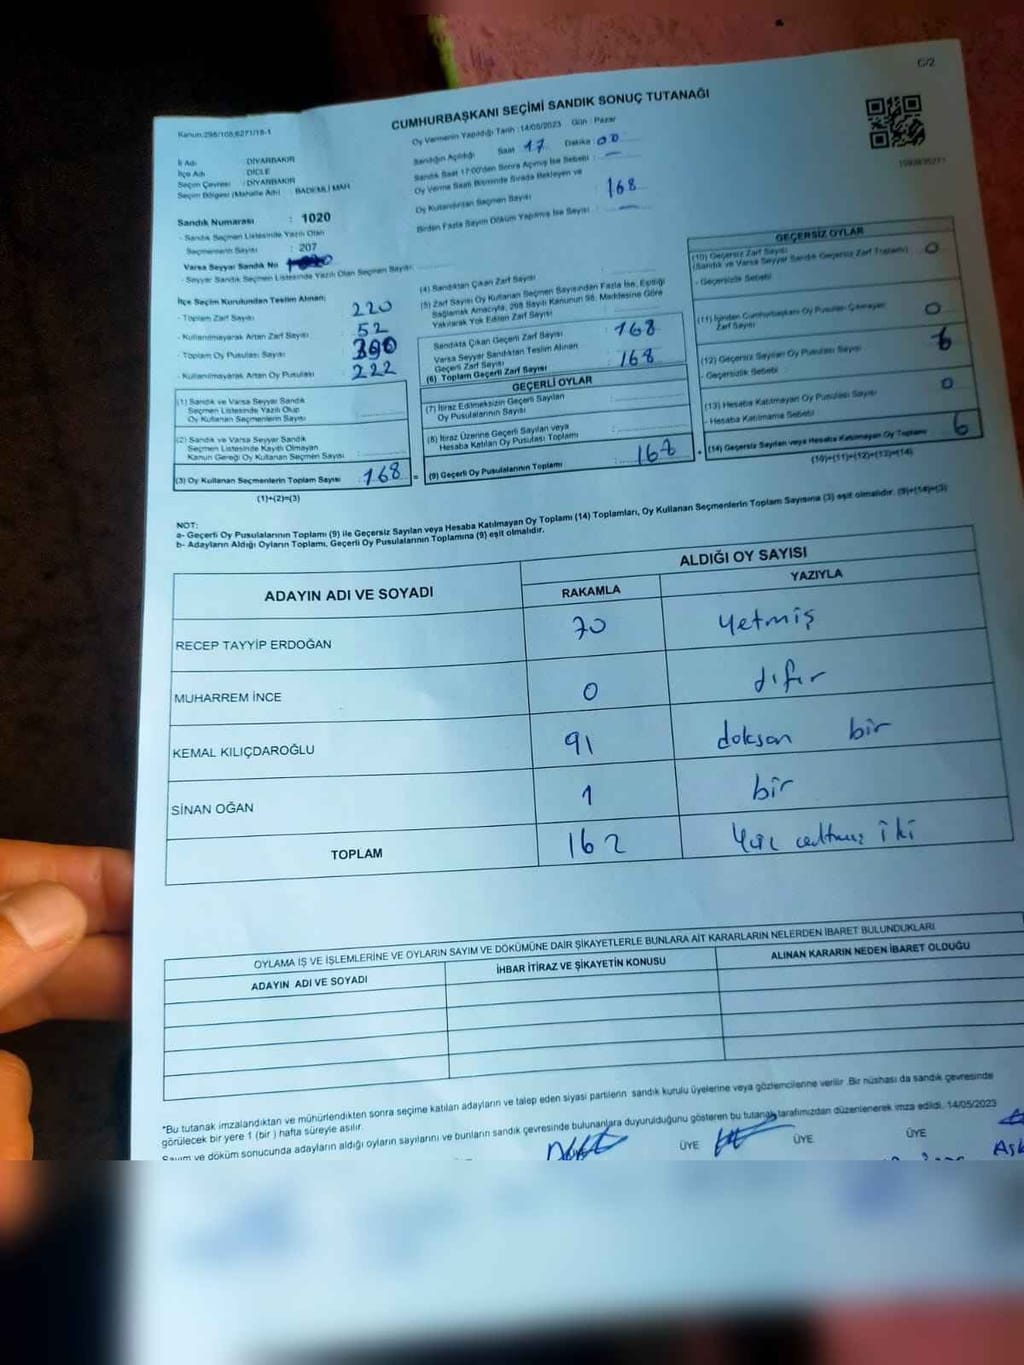 C/2
CUMHURBAŞKANI SEÇİMİ SANDIK SONUÇ TUTANAĞI
Kanun:298/108,6271/18-1
Oy Vermenin Yapıldığı Tarih : 14/05/2023 Gün : Pazar
İl Adı : DİYARBAKIR
İlçe Adı : DİCLE
Seçim Çevresi : DİYARBAKIR
Seçim Bölgesi (Mahalle Adı) : BADEMLİ MAH.
Sandık Numarası : 1020
- Sandık Seçmen Listesinde Yazılı Olan
Seçmenlerin Sayısı : 207
Varsa Seyyar Sandık No
- Seyyar Sandık Seçmen Listesinde Yazılı Olan Seçmen Sayısı
Sandığın Açıldığı Saat 17 Dakika 00
Sandık Saat 17:00'den Sonra Açılmış İse Sebebi : —
Oy Verme Saati Bitiminde Sırada Bekleyen ve
Oy Kullandırılan Seçmen Sayısı : 168
Birden Fazla Sayım Döküm Yapılmış İse Sayısı : —
İlçe Seçim Kurulundan Teslim Alınan;
- Toplam Zarf Sayısı : 220
- Kullanılmayarak Artan Zarf Sayısı : 52
- Toplam Oy Pusulası Sayısı : 390
- Kullanılmayarak Artan Oy Pusulası : 222
(1) Sandık ve Varsa Seyyar Sandık
Seçmen Listesinde Yazılı Olup
Oy Kullanan Seçmenlerin Sayısı :
(2) Sandık ve Varsa Seyyar Sandık
Seçmen Listesinde Kayıtlı Olmayan
Kanun Gereği Oy Kullanan Seçmen Sayısı :
(3) Oy Kullanan Seçmenlerin Toplam Sayısı : 168
(1)+(2)=(3)
(4) Sandıktan Çıkan Zarf Sayısı
(5) Zarf Sayısı Oy Kullanan Seçmen Sayısından Fazla İse, Eşitliği
Sağlamak Amacıyla, 298 Sayılı Kanunun 98. Maddesine Göre
Yakılarak Yok Edilen Zarf Sayısı
Sandıkta Çıkan Geçerli Zarf Sayısı : 168
Varsa Seyyar Sandıktan Teslim Alınan
Geçerli Zarf Sayısı : 168
(6) Toplam Geçerli Zarf Sayısı
GEÇERLİ OYLAR
(7) İtiraz Edilmeksizin Geçerli Sayılan
Oy Pusulalarının Sayısı :
(8) İtiraz Üzerine Geçerli Sayılan veya
Hesaba Katılan Oy Pusulası Toplamı :
(9) Geçerli Oy Pusulalarının Toplamı : 162
GEÇERSİZ OYLAR
(10) Geçersiz Zarf Sayısı
(Sandık ve Varsa Seyyar Sandık Geçersiz Zarf Toplamı) 0
- Geçersizlik Sebebi
(11) İçinden Cumhurbaşkanı Oy Pusulası Çıkmayan
Zarf Sayısı 0
(12) Geçersiz Sayılan Oy Pusulası Sayısı 6
- Geçersizlik Sebebi
(13) Hesaba Katılmayan Oy Pusulası Sayısı 0
- Hesaba Katılmama Sebebi
(14) Geçersiz Sayılan veya Hesaba Katılmayan Oy Toplamı 6
(10)+(11)+(12)+(13)=(14)
NOT:
a- Geçerli Oy Pusulalarının Toplamı (9) ile Geçersiz Sayılan veya Hesaba Katılmayan Oy Toplamı (14) Toplamları, Oy Kullanan Seçmenlerin Toplam Sayısına (3) eşit olmalıdır. (9)+(14)=(3)
b- Adayların Aldığı Oyların Toplamı, Geçerli Oy Pusulalarının Toplamına (9) eşit olmalıdır.
ADAYIN ADI VE SOYADI ALDIĞI OY SAYISI
RAKAMLA YAZIYLA
RECEP TAYYİP ERDOĞAN 70 yetmiş
MUHARREM İNCE 0 sıfır
KEMAL KILIÇDAROĞLU 91 doksan bir
SİNAN OĞAN 1 bir
TOPLAM 162 Yüz altmış iki
OYLAMA İŞ VE İŞLEMLERİNE VE OYLARIN SAYIM VE DÖKÜMÜNE DAİR ŞİKAYETLERLE BUNLARA AİT KARARLARIN NELERDEN İBARET BULUNDUKLARI
ADAYIN ADI VE SOYADI İHBAR İTİRAZ VE ŞİKAYETİN KONUSU ALINAN KARARIN NEDEN İBARET OLDUĞU
*Bu tutanak imzalandıktan ve mühürlendikten sonra seçime katılan adayların ve talep eden siyasi partilerin sandık kurulu üyelerine veya gözlemcilerine verilir. Bir nüshası da sandık çevresinde
görülecek bir yere 1 (bir) hafta süreyle asılır.
Sayım ve döküm sonucunda adayların aldığı oyların sayılarını ve bunların sandık çevresinde bulunanlara duyurulduğunu gösteren bu tutanak tarafımızdan düzenlenerek imza edildi. 14/05/2023
ÜYE ÜYE ÜYE